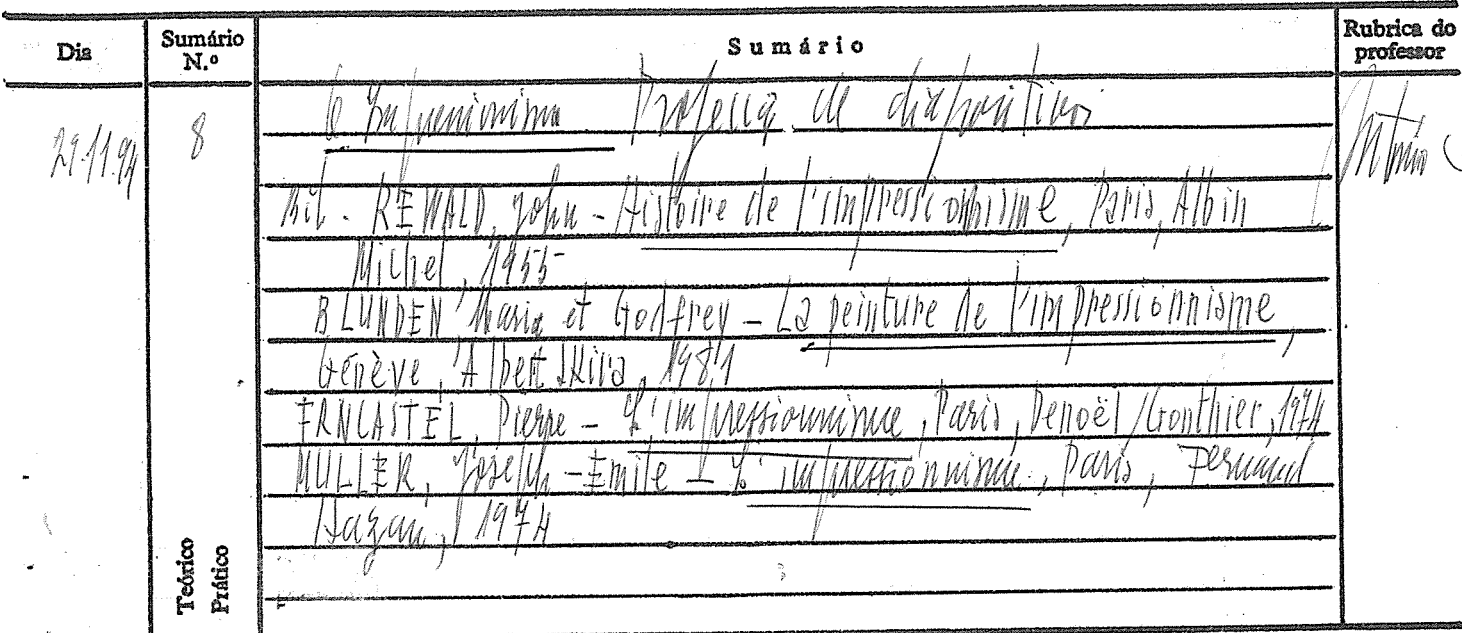 Dia
Sumário N.º
Sumário
Rubrica do professor
29.11.94
8
O Impressionismo Projecção de diapositivos
António
Bib. - REWALD, John - Histoire de l'impressionnisme, Paris, Albin
Michel, 1955
BLUNDEN Maria et Godfrey - La peinture de l'impressionnisme,
Genève, Albert Skira, 1981
FRNCASTEL, Pierre - L'impressionnisme, Paris, Denoël/Gonthier, 1974
MULLER, Joseph-Emile - L'impressionnisme, Paris, Fernand
Hazan, 1974
Teórico
Prático